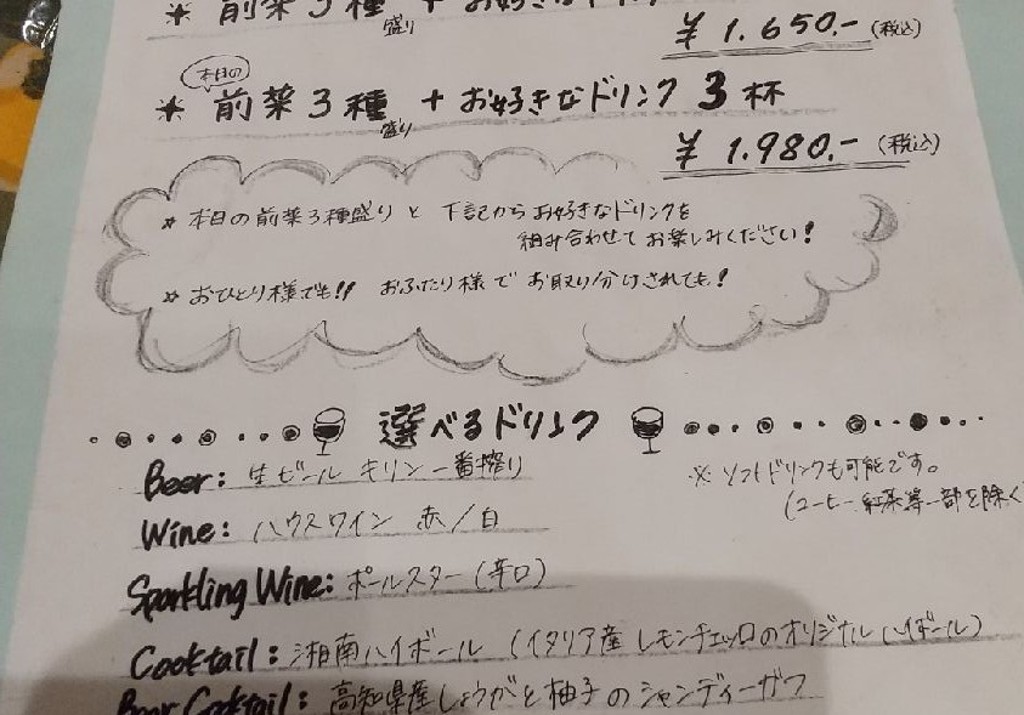 * 前菜3種盛り + お好きなドリンク
¥1.650.-(税込)
本日の
* 前菜3種盛り + お好きなドリンク 3杯
¥1.980.-(税込)
☆ 本日の前菜3種盛りと 下記からお好きなドリンクを
組み合わせてお楽しみください!
☆ おひとり様でも!! おふたり様で お取り分けされても!
選べるドリンク
Beer: 生ビール キリン一番搾り
※ ソフトドリンクも可能です。
(コーヒー、紅茶等一部を除く
Wine: ハウスワイン 赤/白
Sparkling Wine: ポールスター(辛口)
Cocktail: 湘南ハイボール (イタリア産 レモンチェッロのオリジナルハイボール)
Beer Cocktail: 高知県産しょうがと柚子のシャンディーガフ